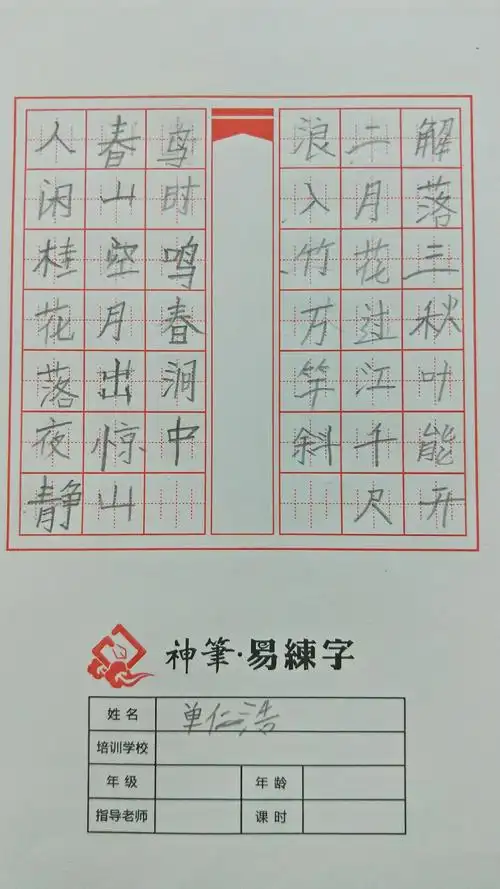 解落三秋叶能开
二月花过江千尺
浪入竹万竿斜
人闲桂花落夜静
春山空月出惊山
鸟时鸣春涧中
神筆·易練字
姓名 单仁浩
培训学校
年级 年龄
指导老师 课时